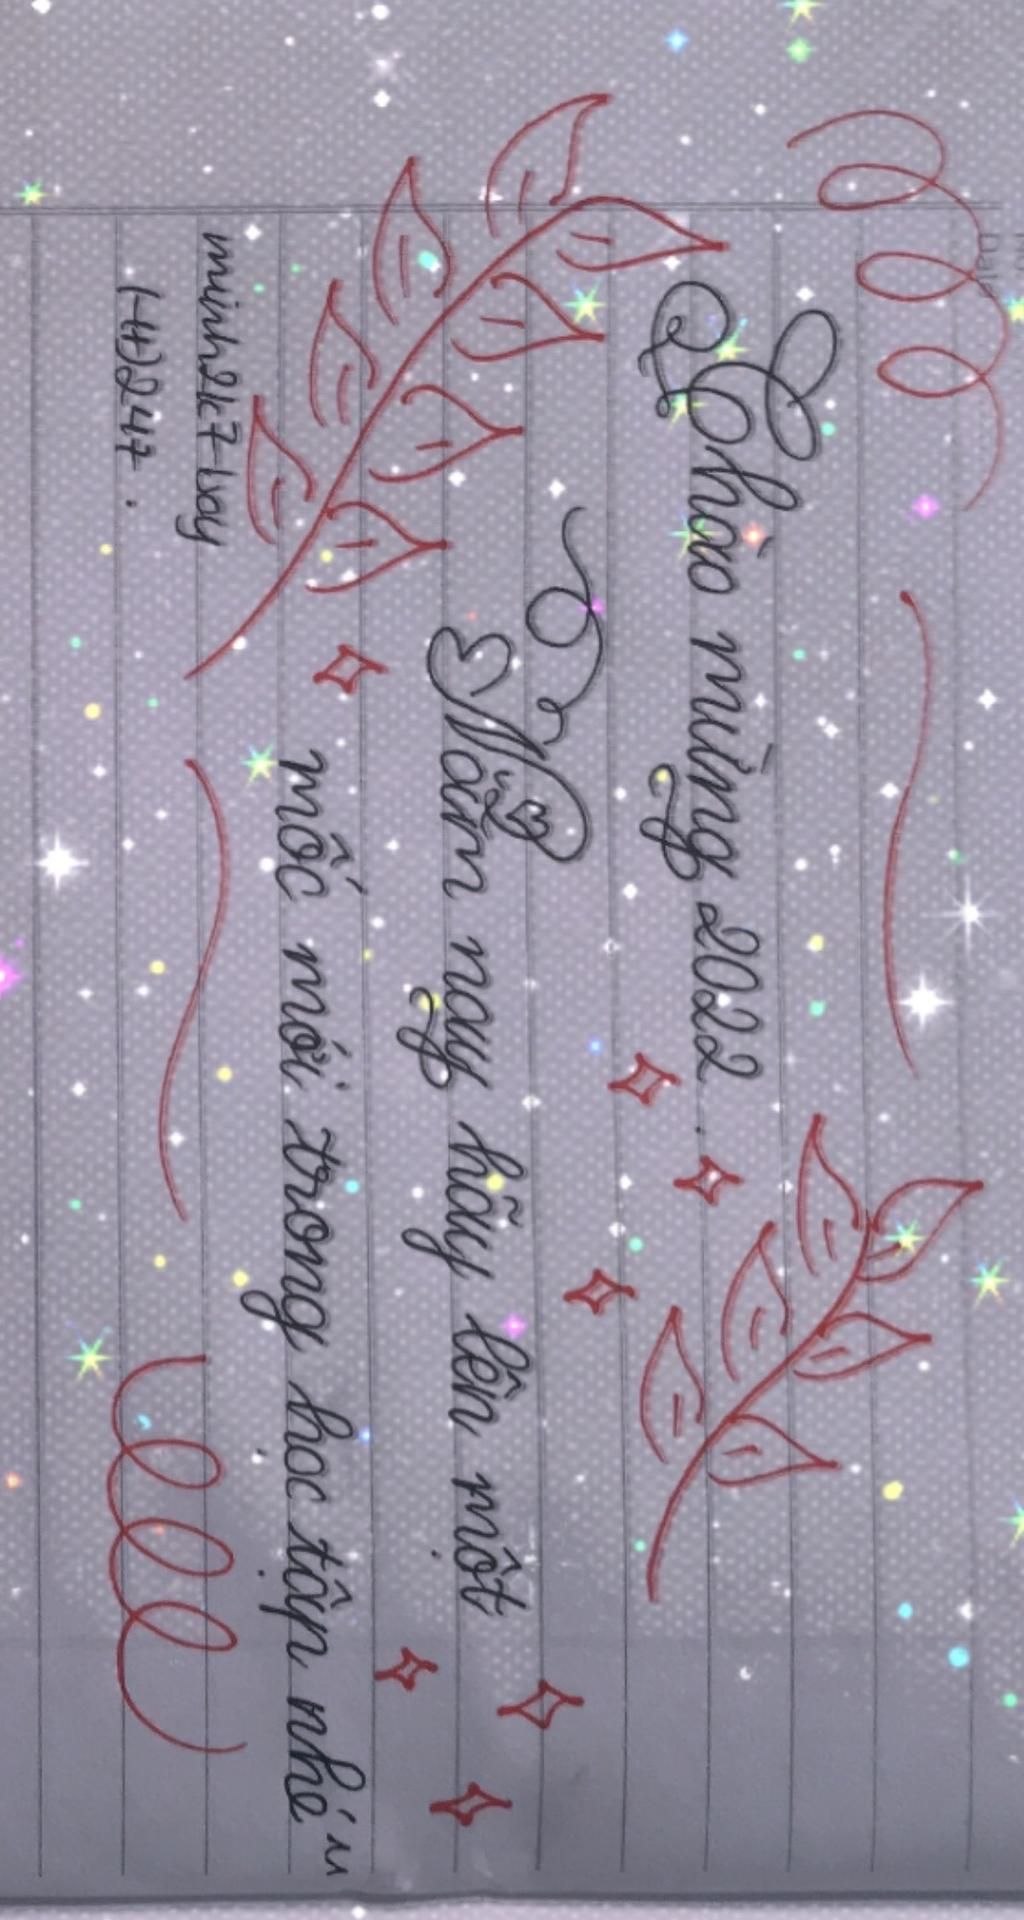 Chào mừng 2022.
Năm nay hãy lên một
mốc mới trong học tập nhé ~
minh2k7-hsay